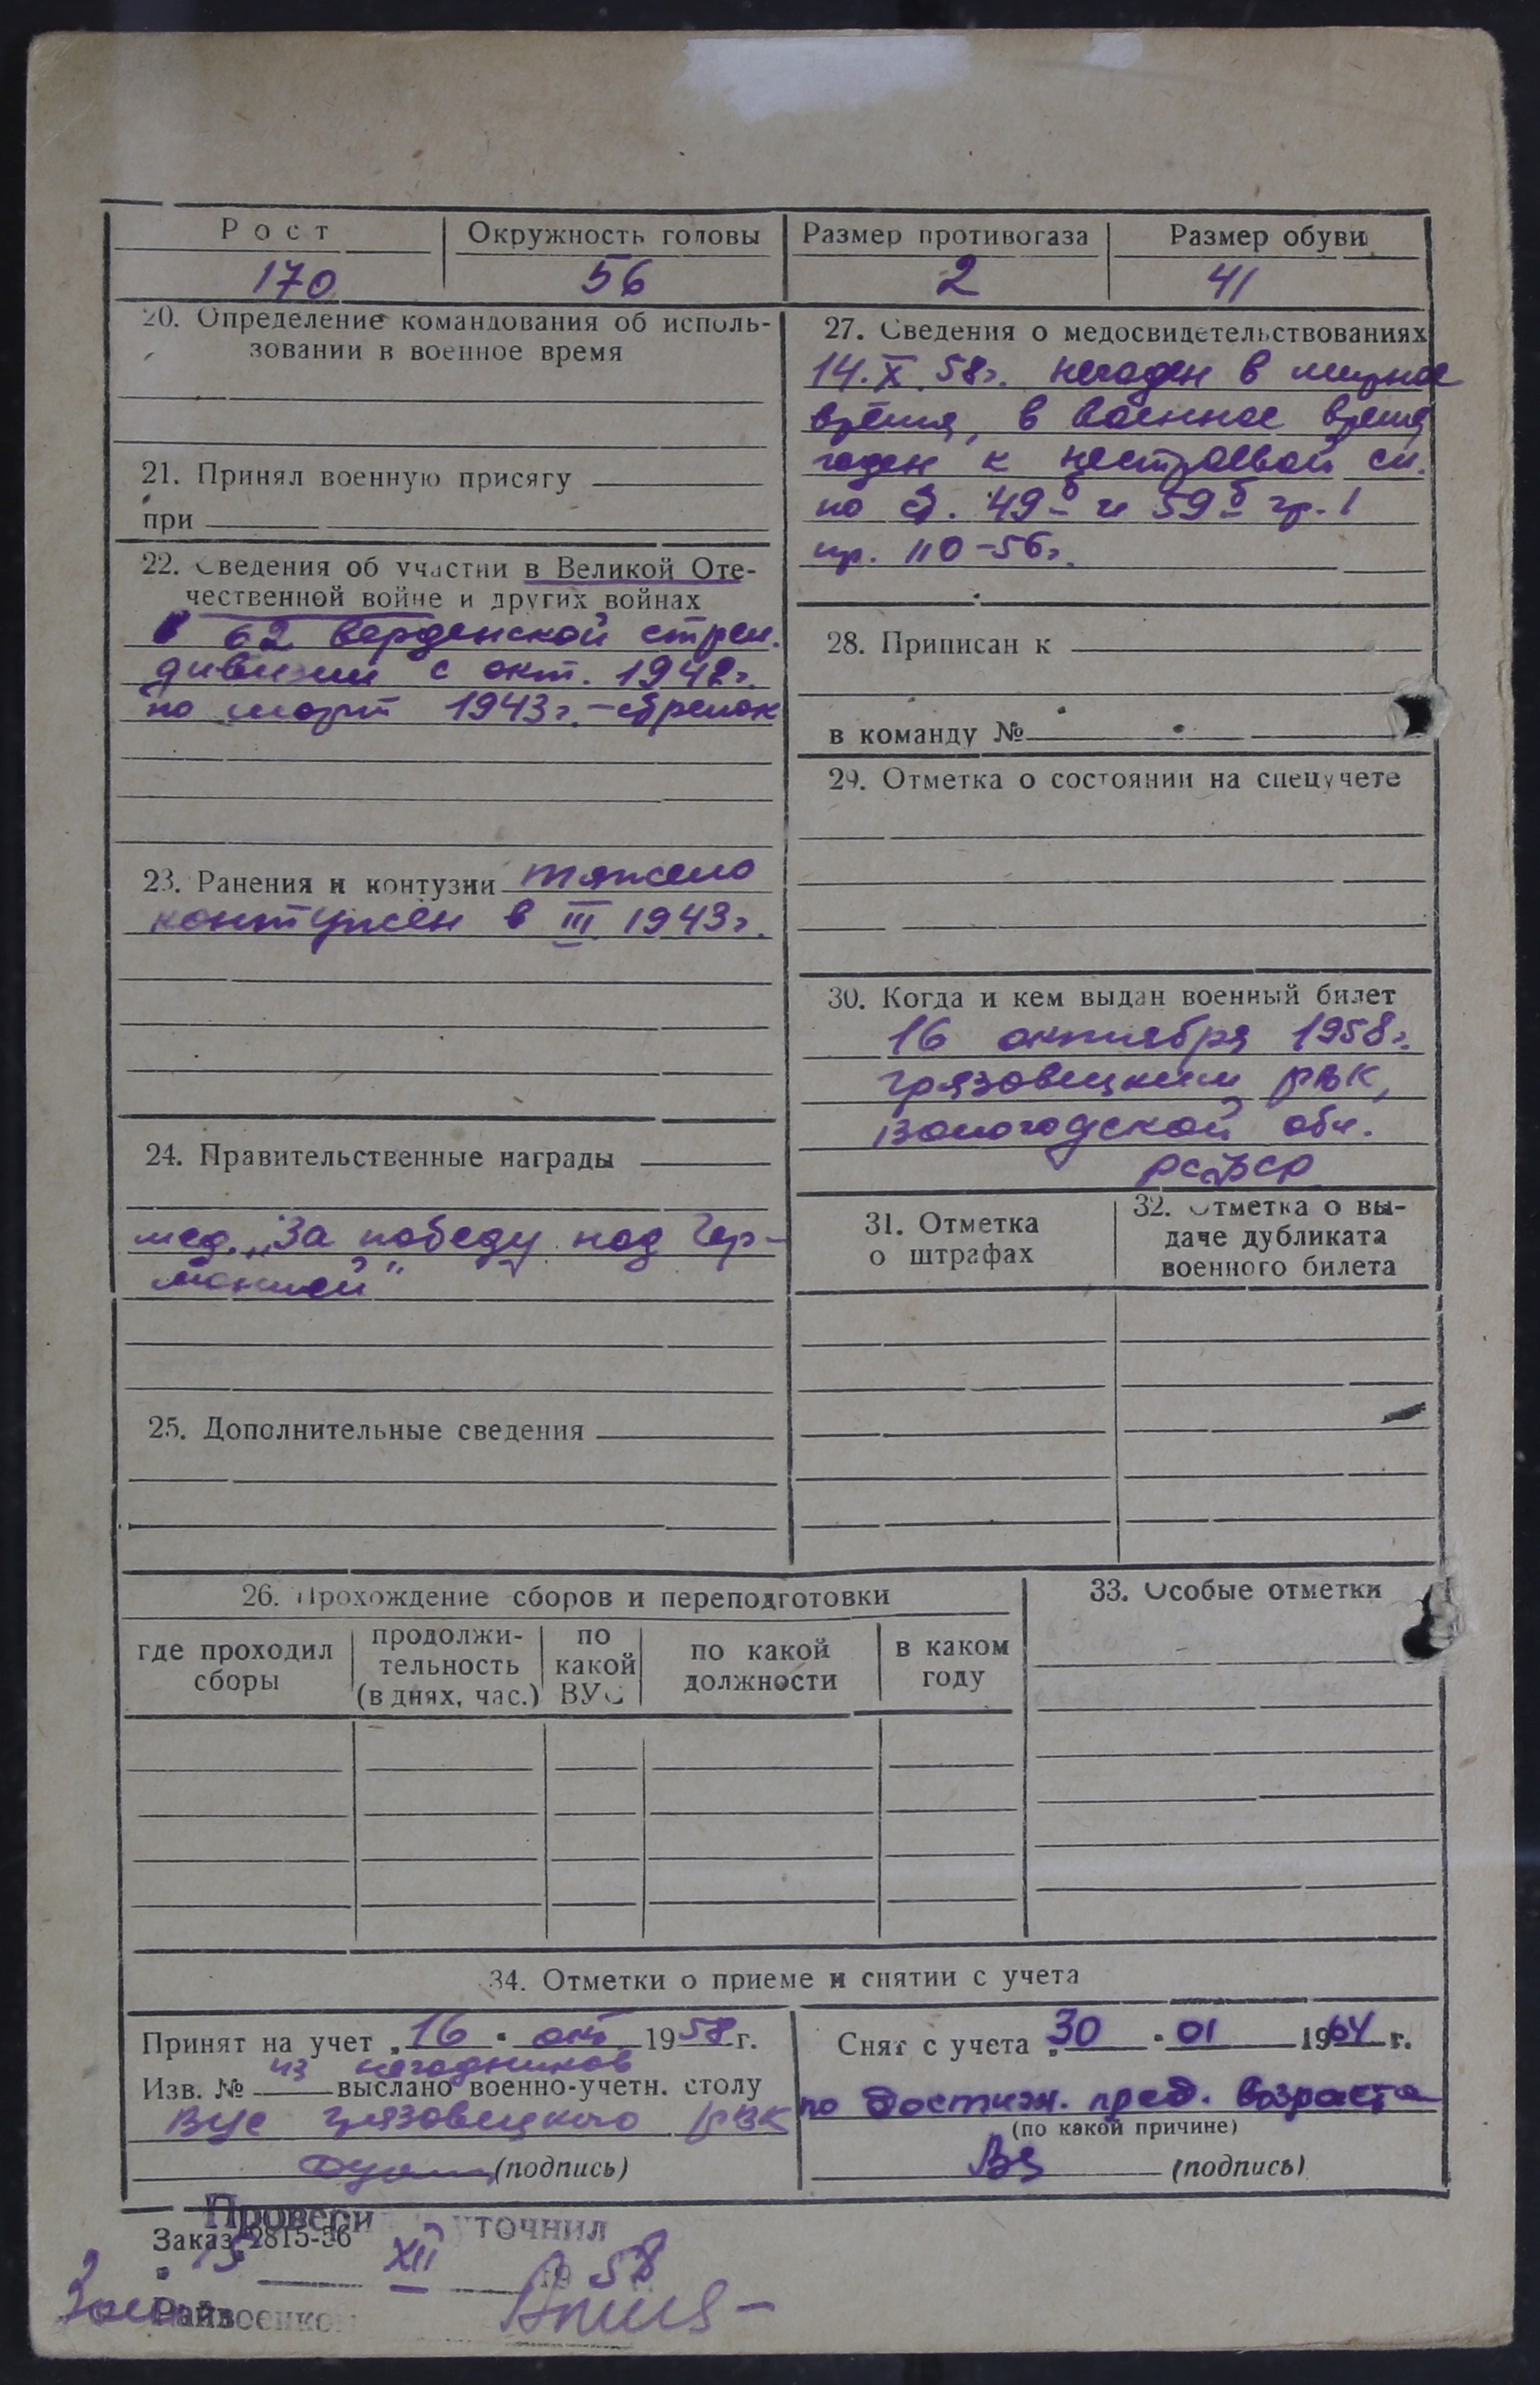 Рост
Окружность головы
Размер противогаза
Размер обуви
170
56
2
41
20. Определение командования об исполь-
зовании в военное время
21. Принял военную присягу
при
22. Сведения об участии в Великой Оте-
чественной войне и других войнах
62 верденской стрел.
дивизии с окт. 1942г.
по март 1943г. – стрелок
23. Ранения и контузии тяжело
контужен в III 1943г.
24. Правительственные награды
мед. „За победу над Гер-
манией"
25. Дополнительные сведения
27. Сведения о медосвидетельствованиях
14.X.58г. негоден в мирное
время, в военное время
годен к нестроевой сл.
по ст. 49б и 59б гр. I
пр. 110-56г.
28. Приписан к
в команду №
29. Отметка о состоянии на спецучете
30. Когда и кем выдан военный билет
16 октября 1958г.
Грязовецким РВК,
Вологодской обл.
РСФСР
31. Отметка
о штрафах
32. Отметка о вы-
даче дубликата
военного билета
26. Прохождение сборов и переподготовки
где проходил
сборы
продолжи-
тельность
(в днях, час.)
по
какой
ВУС
по какой
должности
в каком
году
33. Особые отметки
34. Отметки о приеме и снятии с учета
Принят на учет „16" окт 1958г.
из негодников
Изв. № выслано военно-учетн. столу
ВУС Грязовецкого РВК
(подпись)
Снят с учета „30" 01 1964 г.
по достиж. пред. возраста
(по какой причине)
(подпись)
Провери уточнил
Заказ 2815-56
15 XII 1958
Райвоенком